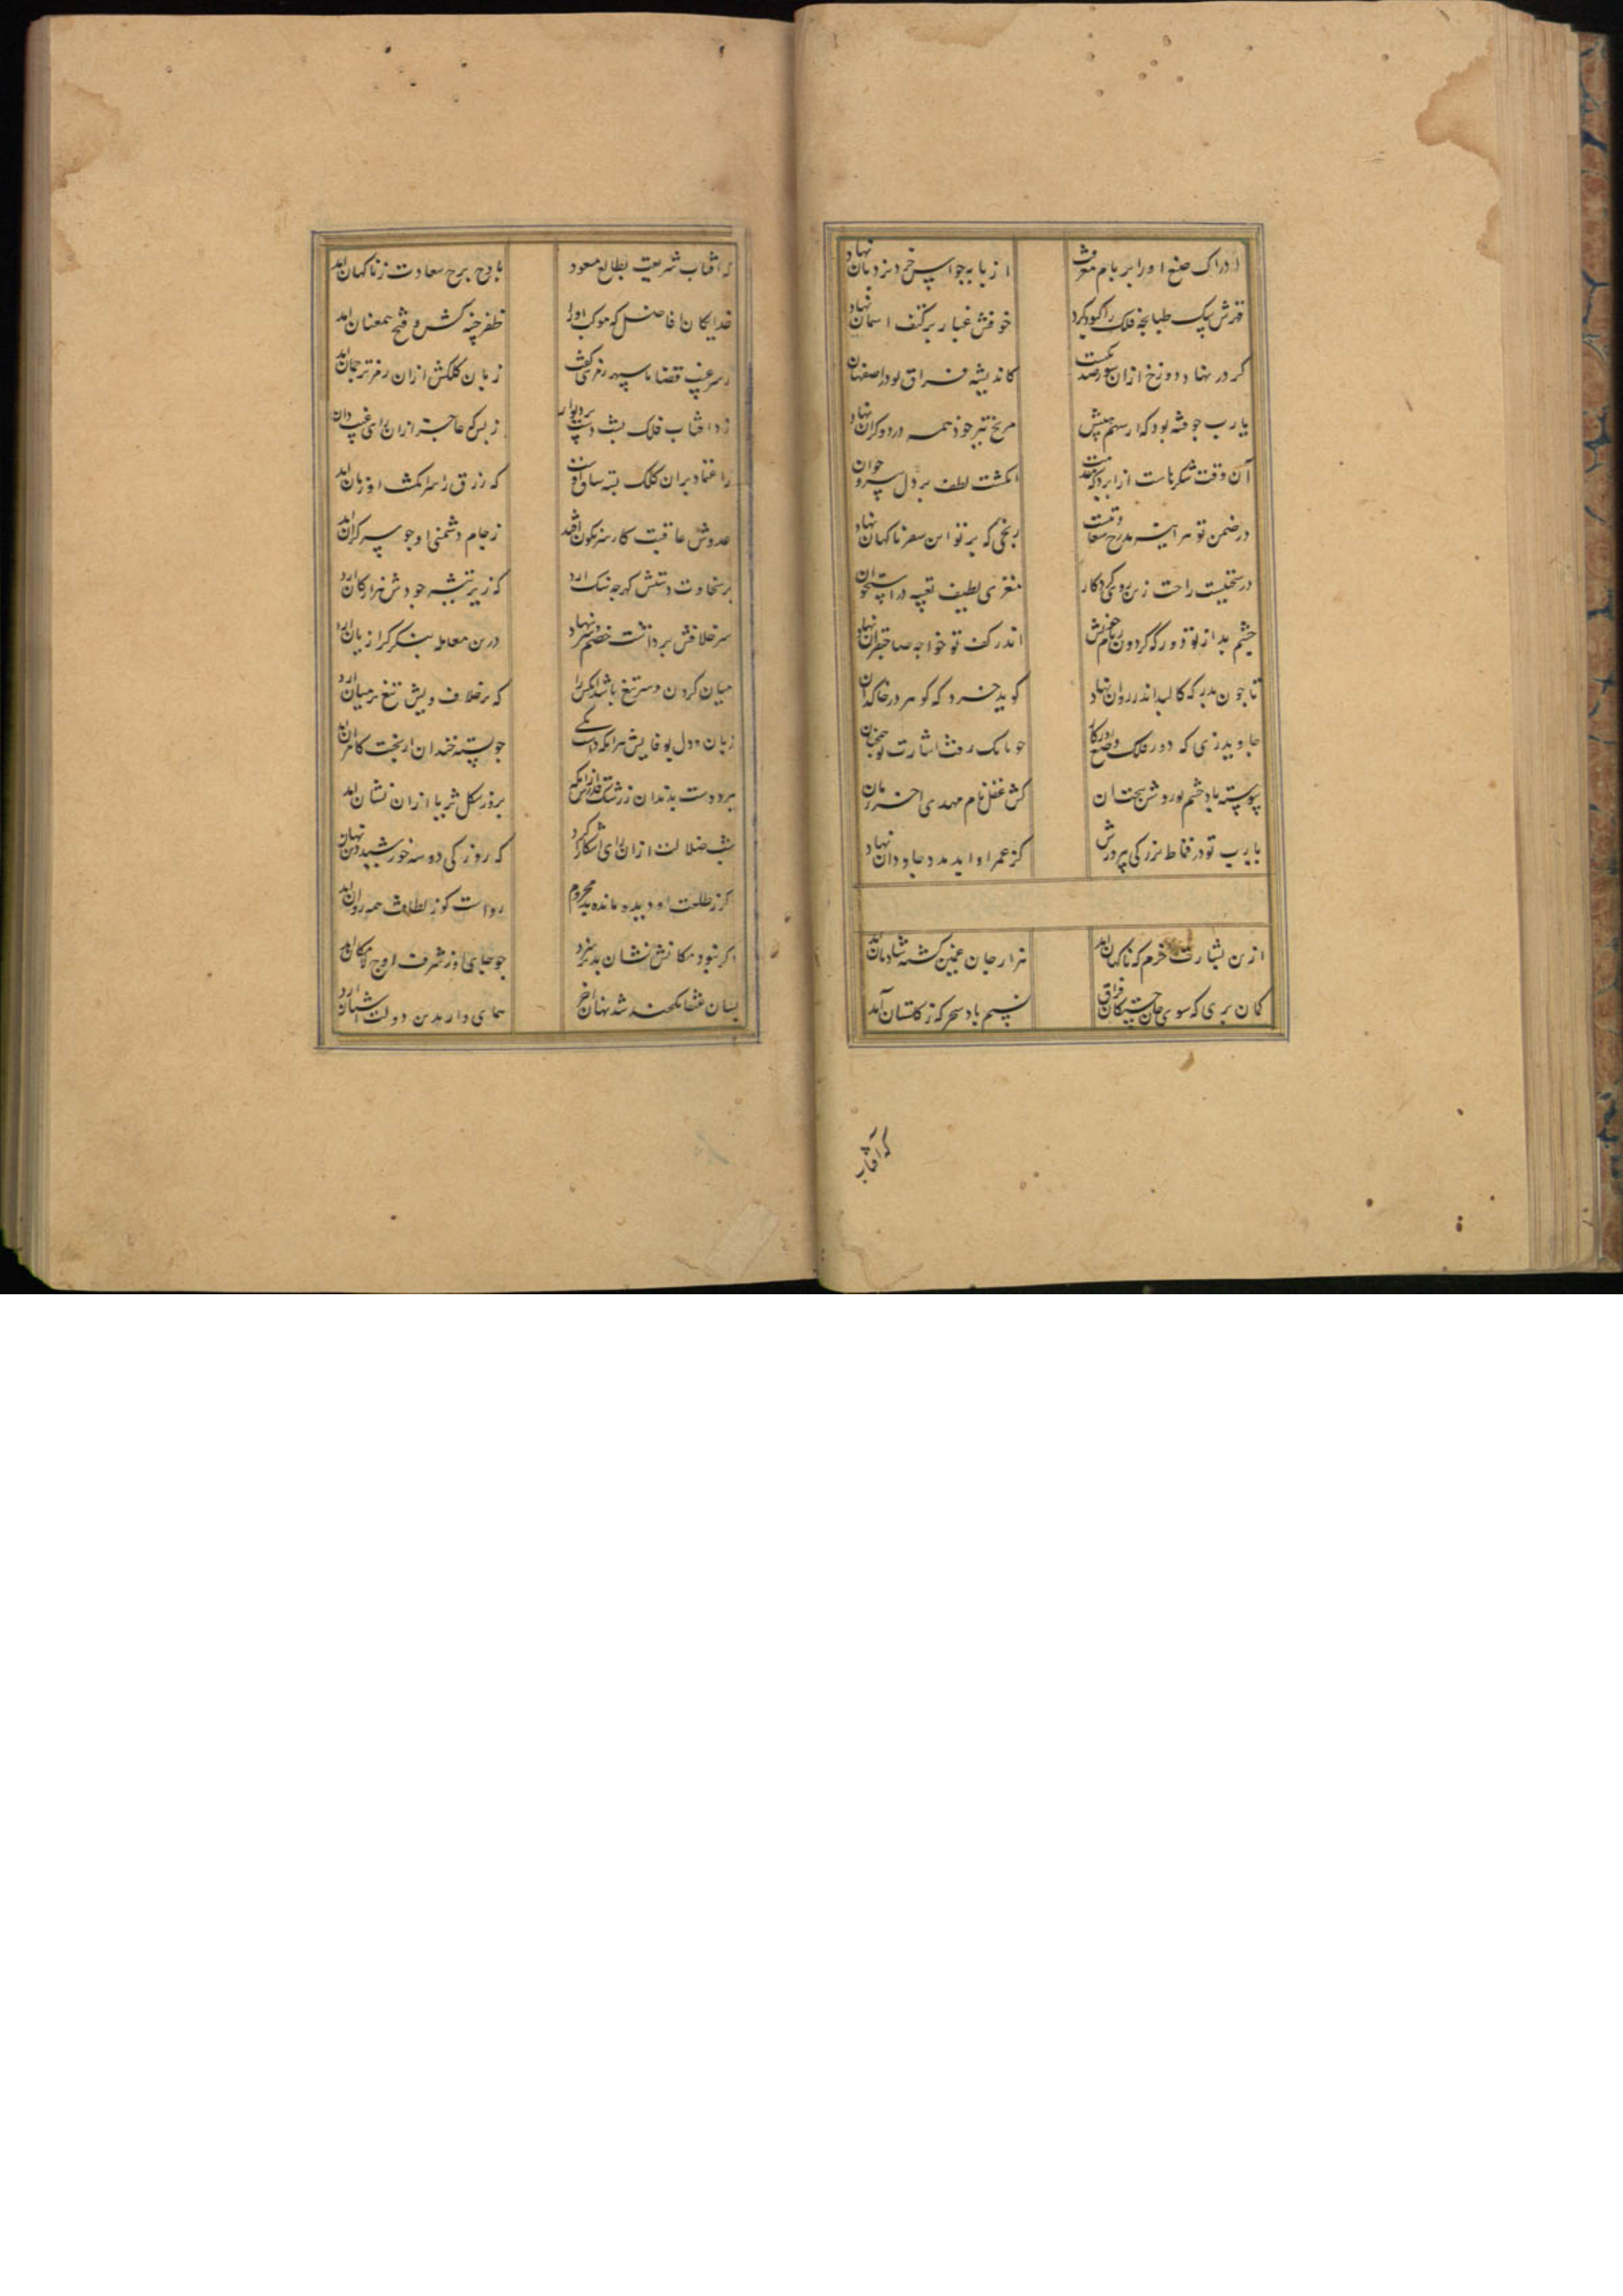 ادراک صنع اورا بر بام معرفت از پایه حواس خرد نردبان نهاد
قدرش بیک طبانجه فلک را کبود کرد خوفش غبار بر کتف اسمان نهاد
کر در نهاد دوزخ ازان سور صد یکست کاندیشه فراق بود در اصفهان
یا رب جو فتنه بود که از سهم هیبتش مریخ تیر خود همه در دوکدان نهاد
آن وقت شکر ماست از ایزد که انکشت لطف بر دل پیر و جوان
در ضمن تو هر اینه مدرج سعادتست رنجی که بر تو این سفر ناکهان نهاد
در سختیست راحت ازین روی کردکار مغزی لطیف تعبیه در استخوان
چشم بد از تو دور که گردون زمام خویش اندر کف تو خواجه صاحبقران نهاد
تا جون بدر که کالبد اندر روان نهاد کوید خرد که کوهر در خاکدان
جاوید زی که دور فلک جو بانک رفت اشارت تو جنان
پیوسته باد چشم تو روشن بدان کش عقل نام مهدی اخر زمان
یا رب تو در قماط بزرکی بپرورش کز عمر او اید مدد جاودان نهاد
ازین بشارت خرم که ناکهان امد هزار جان غمین کشته شادمان امد
کمان بری که سوی جان خستکان فراق نسیم باد سحر که ز کلستان آمد
که آفتاب
که افتاب شریعت بطالع مسعود باوج برج سعادت ز ناکهان امد
خدایکان افاضل که موکب اورا ظفر جنیبه کش و فتح همعنان امد
ز سر غیب قضا با سپهر رمزی کفت زبان کلکش ازان رمز ترجمان امد
زد افتاب فلک پشت دست بر دیوار ز بس که عاجز ازان رای غیب دان
ز اعتماد بران کلک بسته ساق که رزق را سر انکشت او زبان امد
عدوش عاقبت کار سرنکون افتد ز جام دشمنی او جو سر کران امد
بر سخاوت دستش کهر جه سنک ارد که زیر تیشه جودش هزار کان ارد
سر خلافش برداشت خصم و سر بنهاد درین معامله بنکر کرا زیان ارد
میان کردن و سر تیغ باشد انکس را که بر خلاف ویش تیغ بر میان ارد
زبان و دل بوفایش هر انکه داشت یکی جو پسته خندان از بخت کامران امد
برد دست بدندان ز رشک قدرش بروز شکل ثریا ازان نشان امد
شب ضلالت ازان رای اشکارا کرد که روز کی دو سه خورشید دین نهان
کر ز طلعت او دیده مانده بد محروم رواست کو ز لطافت همه روان امد
اکر نبود مکانش نشان بدیر سزد جو جای او ز شرف اوج لامکان امد
بسان عنقا یکجند شد نهان اخر همای وار بدین دولت اشیان ارد